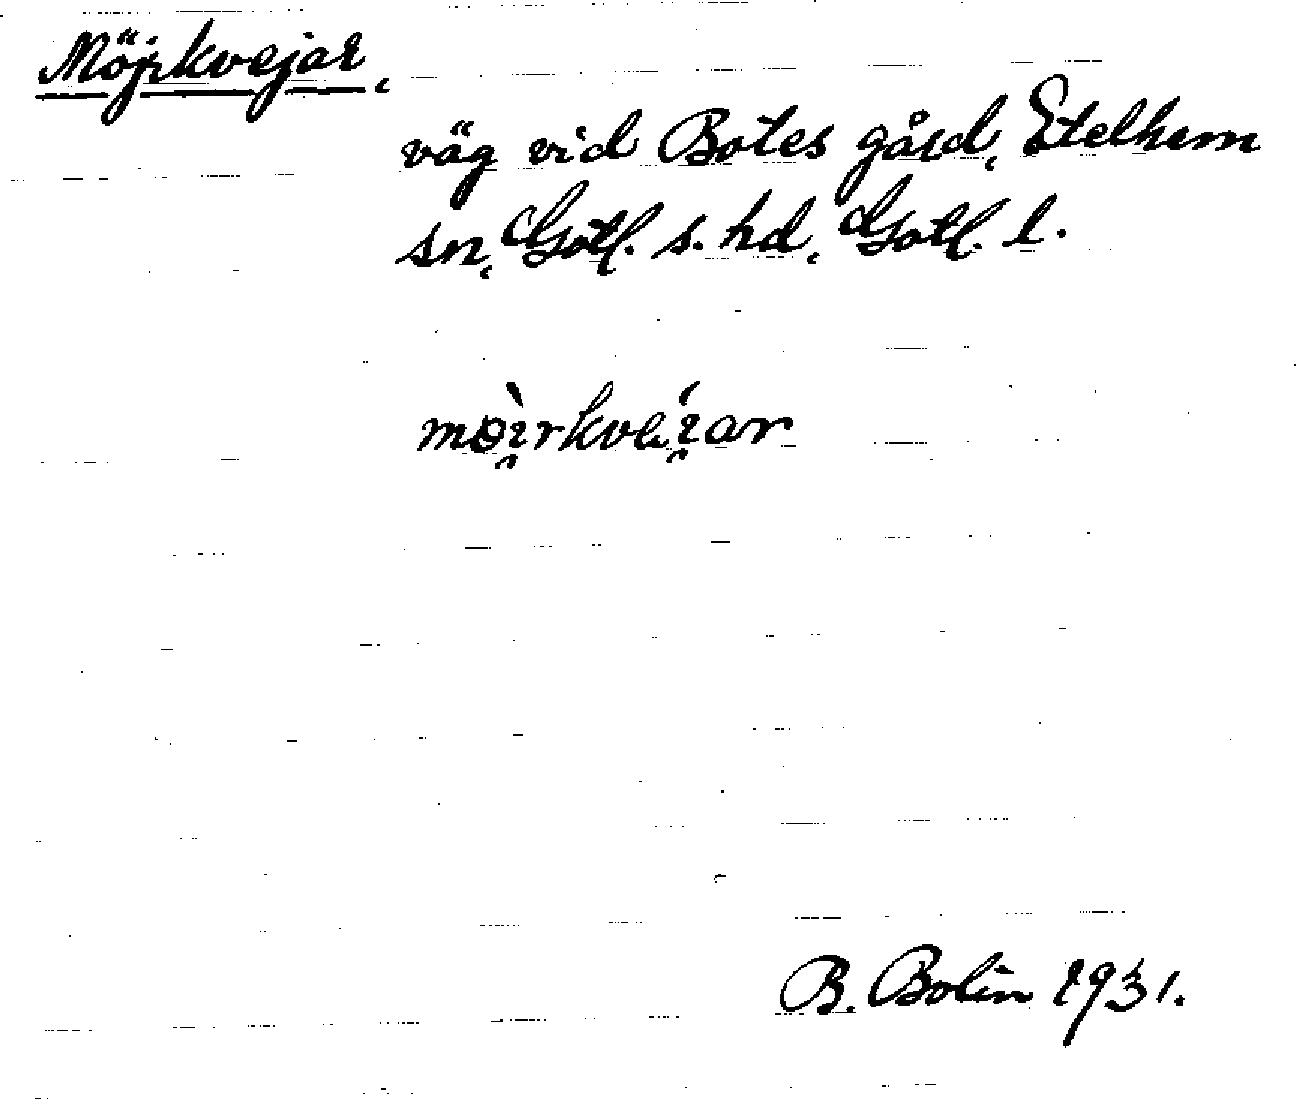 Möjrkvejar,
väg vid Botes gård, Etelhem
sn, Gotl. s. hd, Gotl. l.
mɵ̀i̯rkvéi̯ar
B. Bolin 1931.